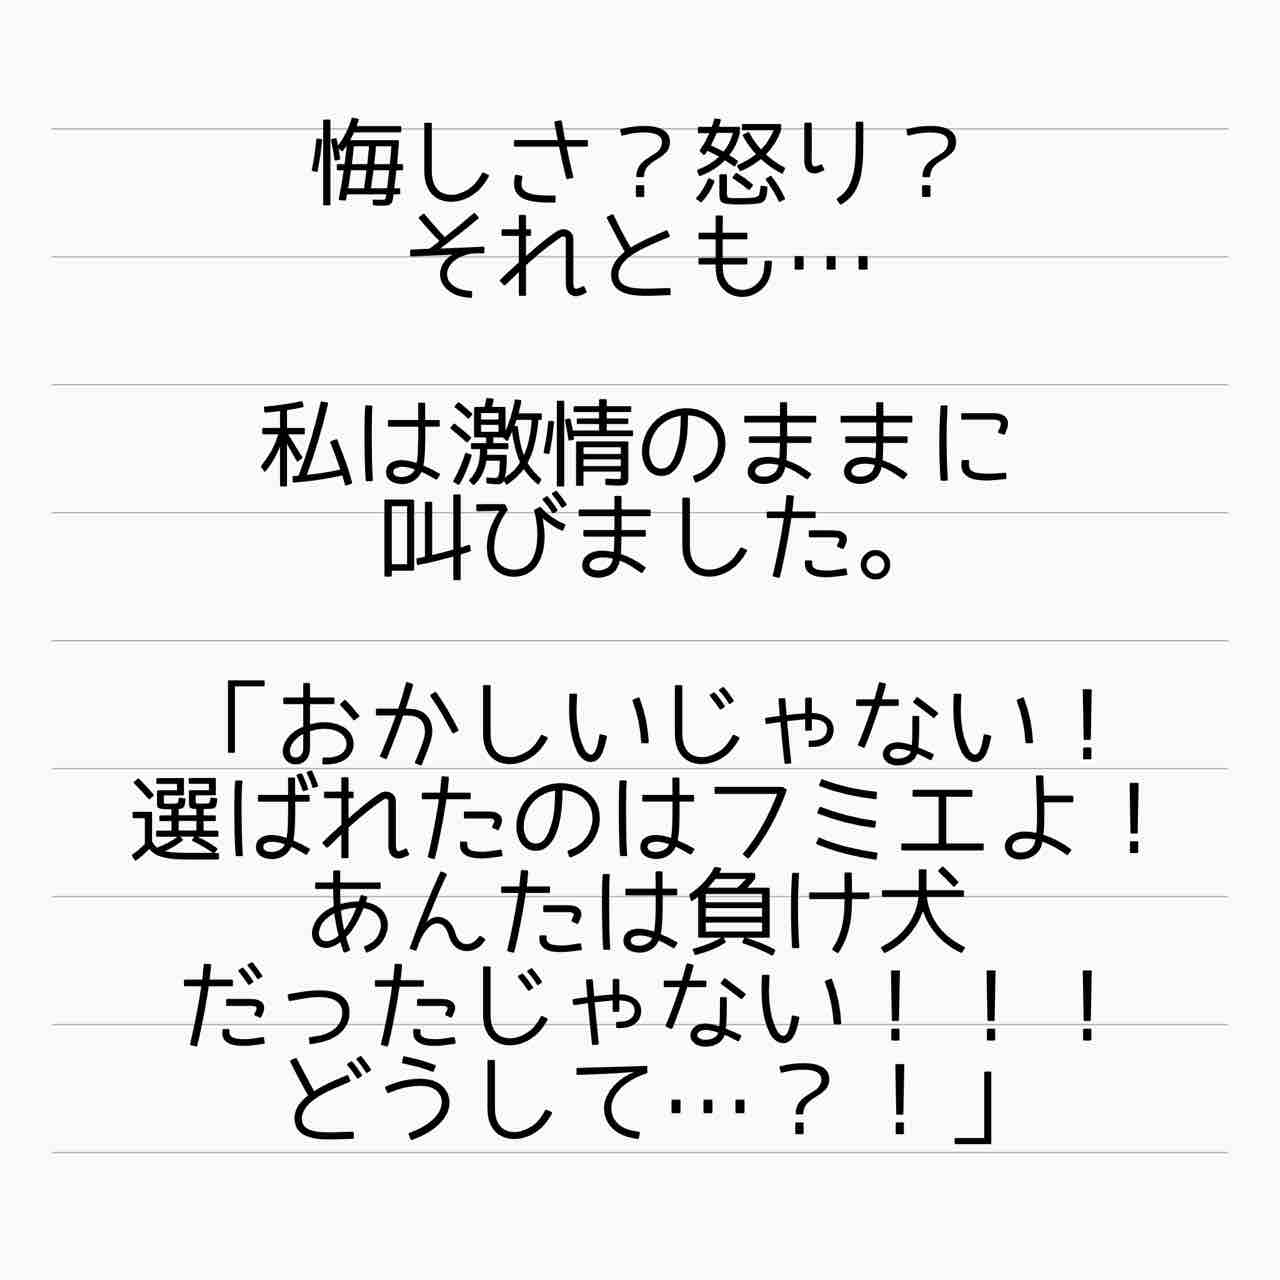 悔しさ？怒り？
それとも…
私は激情のままに
叫びました。
「おかしいじゃない！
選ばれたのはフミエよ！
あんたは負け犬
だったじゃない！！！
どうして…？！」